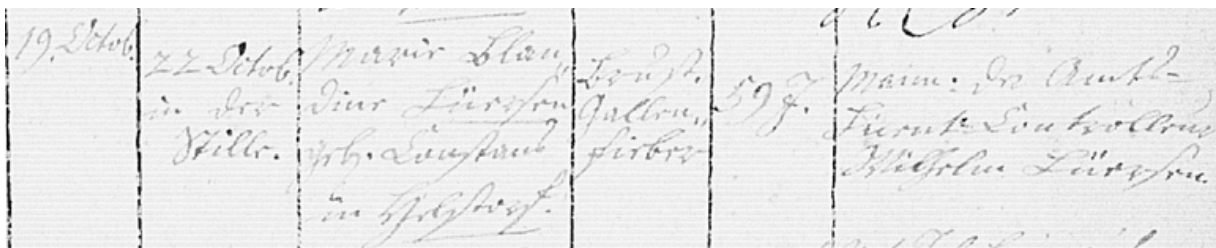 19. Octob.
22 Octob.
in der
Stille.
Marie Blan„
dine Lüersen
geb. Constans
in Helstorf.
Brust.
Gallen„
fieber
59 J.
Mann: der Amts-
Controlleur
Wilhelm Lüersen.